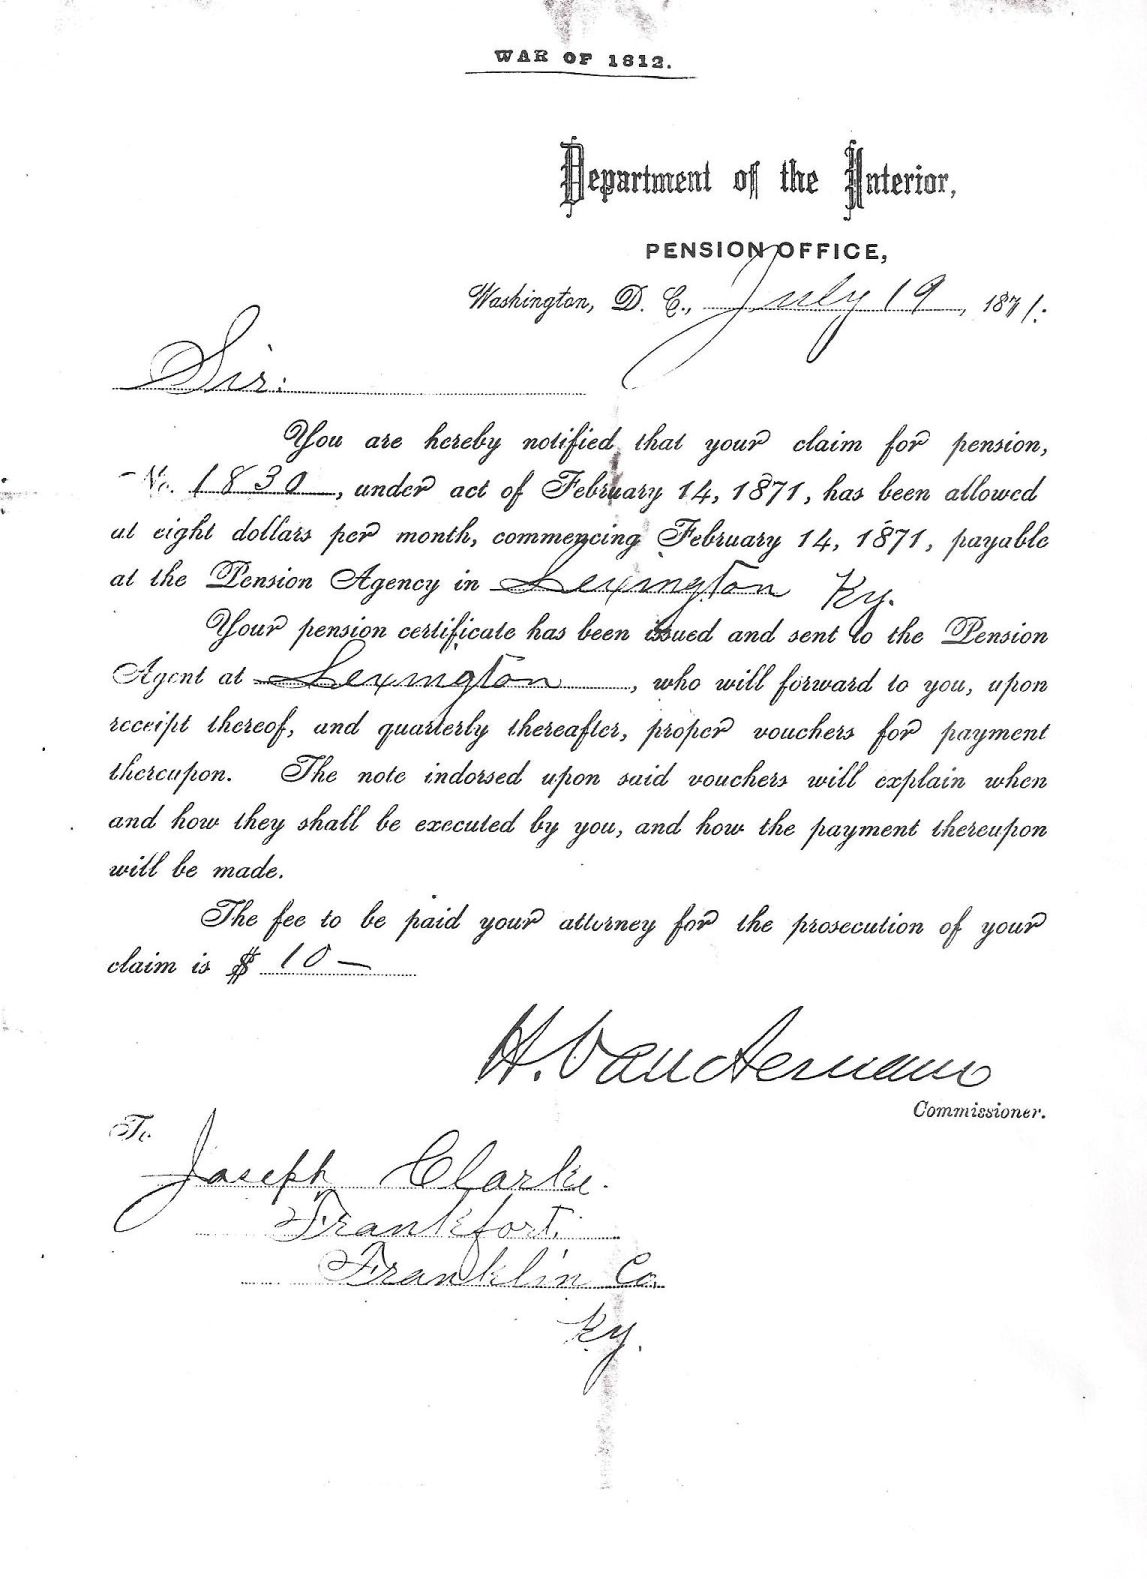 WAR OF 1812.
Department of the Interior,
PENSION OFFICE,
Washington, D. C., July 19, 1871.
Sir:
You are hereby notified that your claim for pension,
No. 1830, under act of February 14, 1871, has been allowed
at eight dollars per month, commencing February 14, 1871, payable
at the Pension Agency in Lexington Ky.
Your pension certificate has been issued and sent to the Pension
Agent at Lexington, who will forward to you, upon
receipt thereof, and quarterly thereafter, proper vouchers for payment
thereupon. The note indorsed upon said vouchers will explain when
and how they shall be executed by you, and how the payment thereupon
will be made.
The fee to be paid your attorney for the prosecution of your
claim is $ 10 —
H.
Commissioner.
To
Joseph Clarke.
Frankfort.
Franklin Co.
Ky.